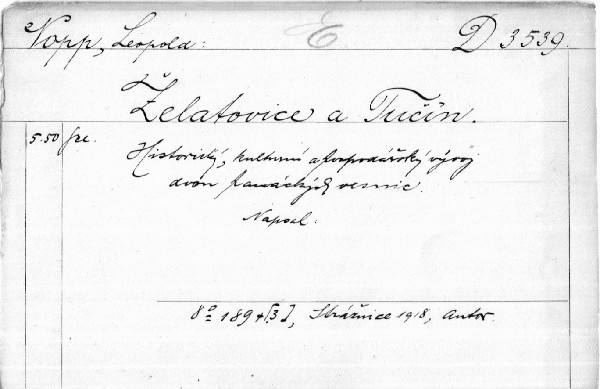 Nopp, Leopold: E D 3539.
Želatovice a Tučín.
5.50
Historický, kulturní a hospodářský vývoj
dvou hanáckých vesnic.
Napsal.
8° 189+[3], Strážnice 1918, Autor.